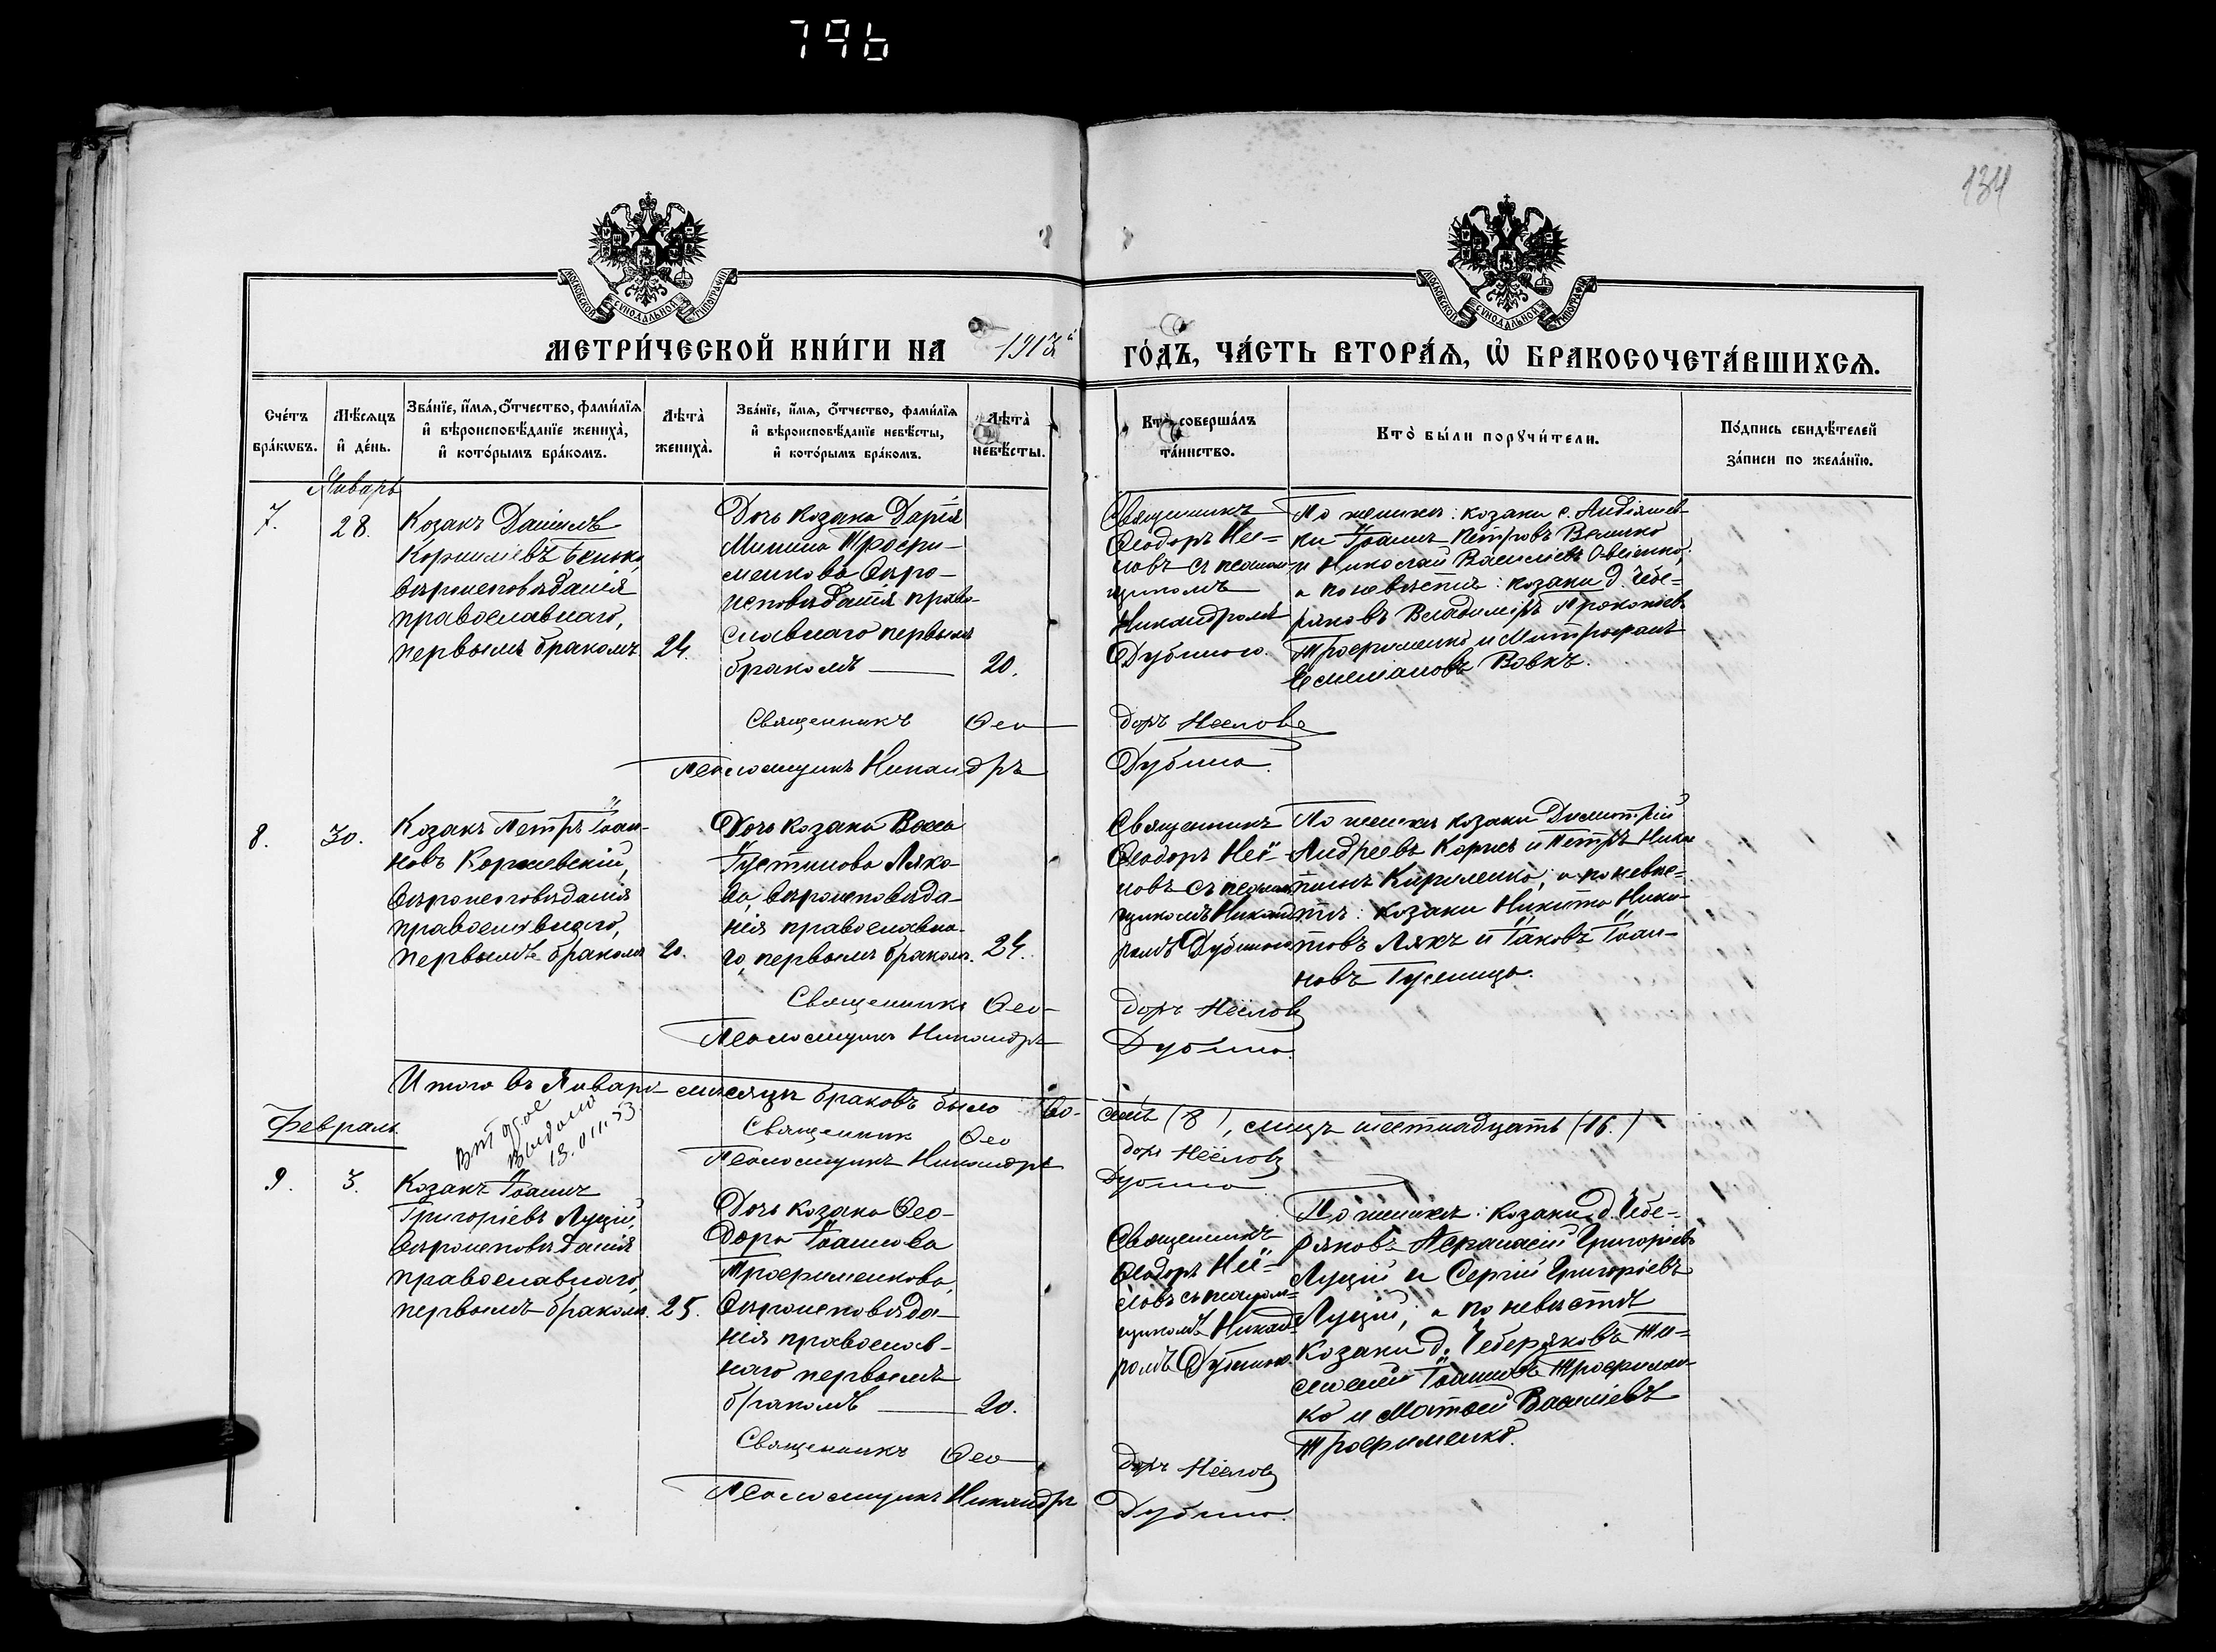 796
134
МОСКОВСКОЙ СѴНОДАЛЬНОЙ ТИПОГРАФІИ
МОСКОВСКОЙ СѴНОДАЛЬНОЙ ТИПОГРАФІИ
МЕТРИ́ЧЕСКОЙ КНИ́ГИ НА 1913й ГО́ДЪ, ЧА́СТЬ ВТОРА́Ѧ, Ѡ҆ БРАКОСОЧЕТА́ВШИХСѦ.
Сче́тъ
бра́кѡвъ.
Мѣ́сѧцъ
и҆ де́нь.
Зва́нїе, и҆́мѧ, ѻ҆́тчество, фами́лїѧ
и҆ вѣроисповѣ́данїе жениха̀,
и҆ кото́рымъ бра́комъ.
Лѣта̀
жениха̀.
Зва́нїе, и҆́мѧ, ѻ҆́тчество, фами́лїѧ
и҆ вѣроисповѣ́данїе невѣ́сты,
и҆ кото́рымъ бра́комъ.
Лѣта̀
невѣ́сты.
Кто̀ соверша́лъ
та́инство.
Кто̀ бы́ли порꙋчи́тели.
По́дпись свидѣ́телей
за́писи по жела́нїю.
Январь
7.
28.
Козакъ Даніилъ
Корниліевъ
вѣроисповѣданія
православнаго,
первымъ бракомъ
24.
Дочь козака Дарія
Минина Трофи-
менкова, вѣро-
исповѣданія право-
славнаго первымъ
бракомъ
20.
Священникъ
Ѳеодоръ Нее-
ловъ съ псалом-
щикомъ
Никандромъ
Дубиною.
По женихѣ: козаки с. Андіяшев-
ки Іоаннъ Петровъ Величко
и Николай Василіевъ Овсіенко,
а по невѣстѣ: козаки д. Чебе-
ряковъ Владиміръ Прокопіевъ
Трофименко и Митрофанъ
Емеліановъ Вовкъ.
Священникъ Ѳеодоръ Нееловъ
Псаломщикъ Никандръ Дубина.
8.
30.
Козакъ Петръ Іоан-
новъ Коршевскій,
вѣроисповѣданія
православнаго,
первымъ бракомъ
20.
Дочь козака Васса
Іустинова Ляко-
ва, вѣроисповѣда-
нія православна-
го, первымъ бракомъ.
24.
Священникъ
Ѳеодоръ Нее-
ловъ съ псалом-
щикомъ Никанд-
ромъ Дубиною
По женихѣ козаки Димитрій
Андреевъ Корнѣ и Петръ
Кириленко, а по невѣс-
тѣ: козаки Никита Ники-
товъ Лякъ и Іаковъ Іоан-
новъ Гусеница.
Священникъ Ѳеодоръ Нееловъ
Псаломщикъ Никандръ Дубина.
Итого въ Январѣ мѣсяцѣ браковъ было восемь (8), лицъ шестнадцать (16.)
Священникъ Ѳеодоръ Нееловъ
Псаломщикъ Никандръ Дубина.
Февраль.
второе
выдано
13.VIII.53.
9.
3.
Козакъ Іоаннъ
Григоріевъ Луцій,
вѣроисповѣданія
православнаго,
первымъ бракомъ.
25.
Дочь козака Ѳео-
дора Іоаннова
Трофименкова,
вѣроисповѣда-
нія православ-
наго первымъ
бракомъ
20.
Священникъ
Ѳеодоръ Нее-
ловъ съ псалом-
щикомъ Никанд-
ромъ Дубиною.
По женихѣ: козаки д. Чебе-
ряковъ Аѳанасій Григоріевъ
Луцій и Сергій Григоріевъ
Луцій, а по невѣстѣ
козаки д. Чеберяковъ Ти-
моѳей Іоанновъ Трофимен-
ко и Матѳей Василіевъ
Трофименко.
Священникъ Ѳеодоръ Нееловъ
Псаломщикъ Никандръ Дубина.